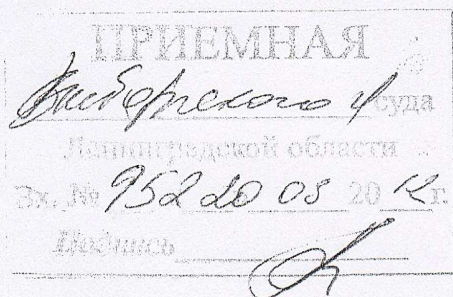 ПРИЕМНАЯ
Выборгского г/суда
Ленинградской области
Вх. № 952 20 08 2012 г.
Подпись